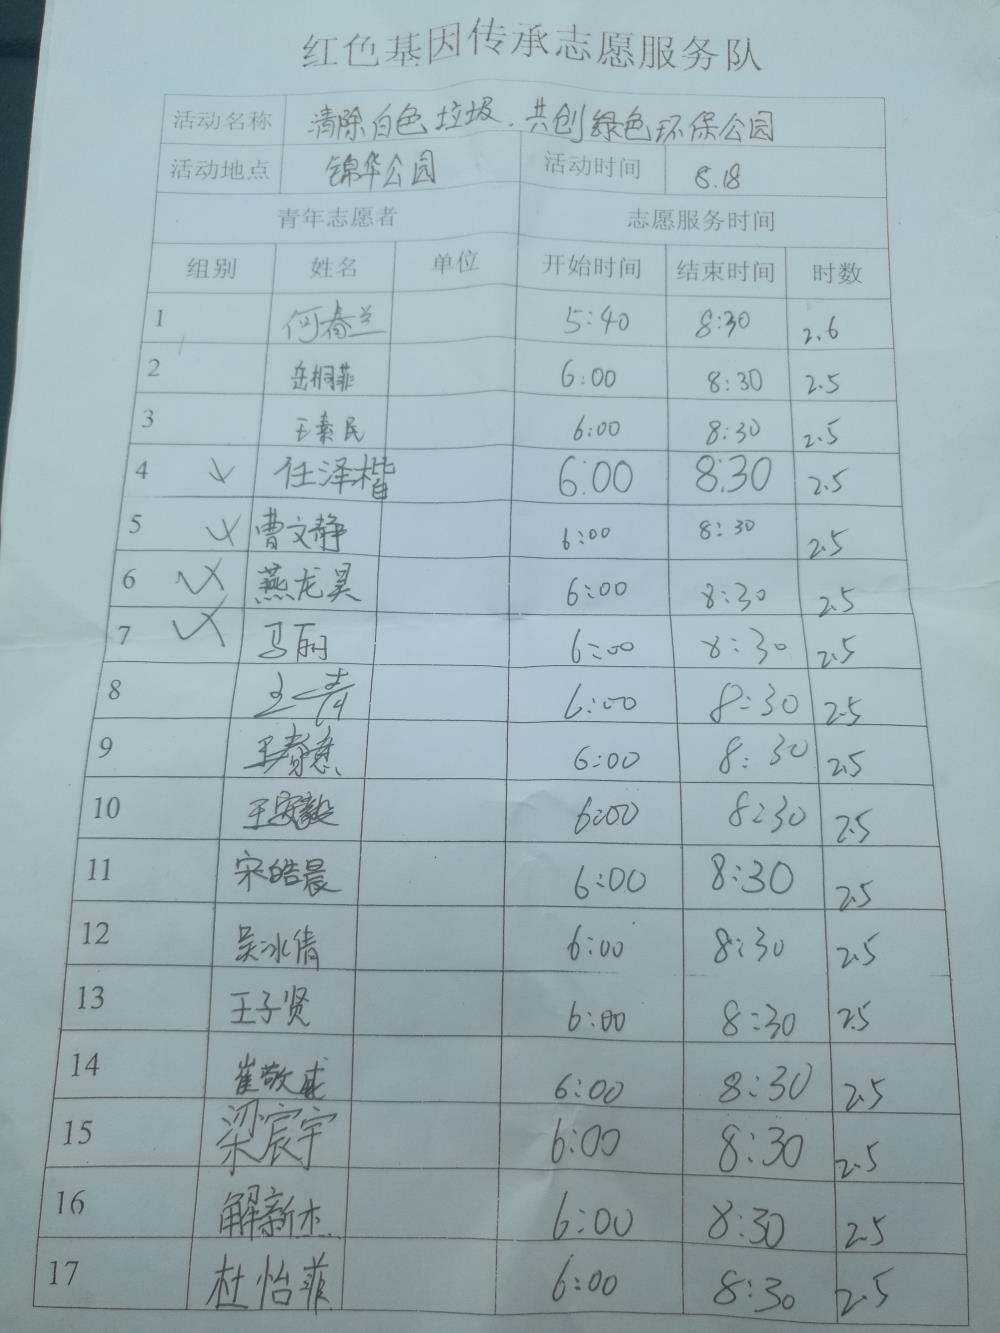 红色基因传承志愿服务队
活动名称 清除白色垃圾.共创绿色环保公园
活动地点 锦华公园 活动时间 8.18
青年志愿者 志愿服务时间
组别 姓名 单位 开始时间 结束时间 时数
1 何春兰 5:40 8:30 2.6
2 岳桐菲 6:00 8:30 2.5
3 王素民 6:00 8:30 2.5
4 任泽楷 6:00 8:30 2.5
5 曹文静 6:00 8:30 2.5
6 燕龙昊 6:00 8:30 2.5
7 马丽 6:00 8:30 2.5
8 王青 6:00 8:30 2.5
9 6:00 8:30 2.5
10 王安毅 6:00 8:30 2.5
11 宋皓晨 6:00 8:30 2.5
12 吴冰倩 6:00 8:30 2.5
13 王子贤 6:00 8:30 2.5
14 崔敬盛 6:00 8:30 2.5
15 梁宸宇 6:00 8:30 2.5
16 解新杰 6:00 8:30 2.5
17 杜怡菲 6:00 8:30 2.5